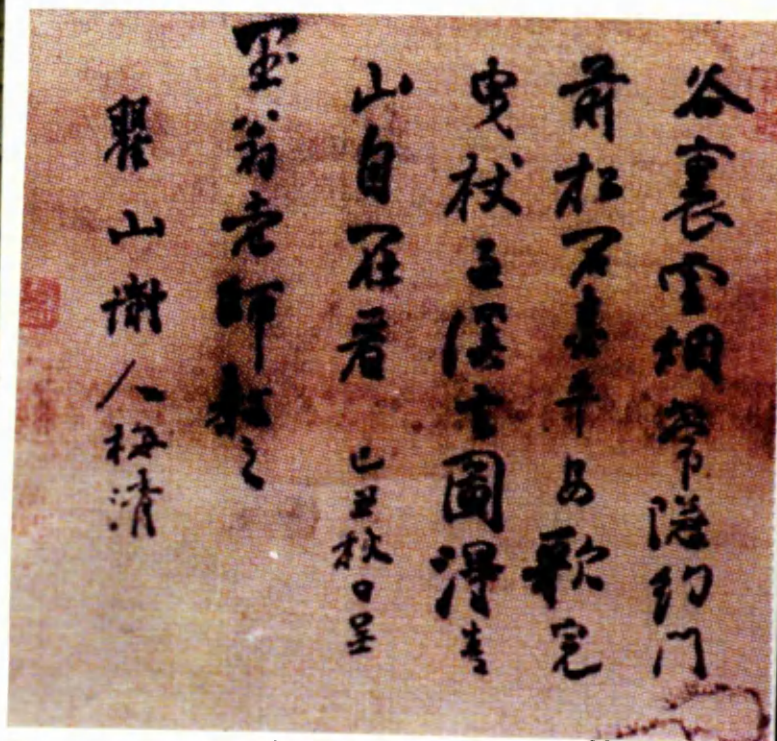 谷裏雲烟常隱約門
前松石壽平安歌完
曳杖王溪去圖得青
山自在看 己丑秋日呈
墨翁老師教之
瞿山瀓人梅清